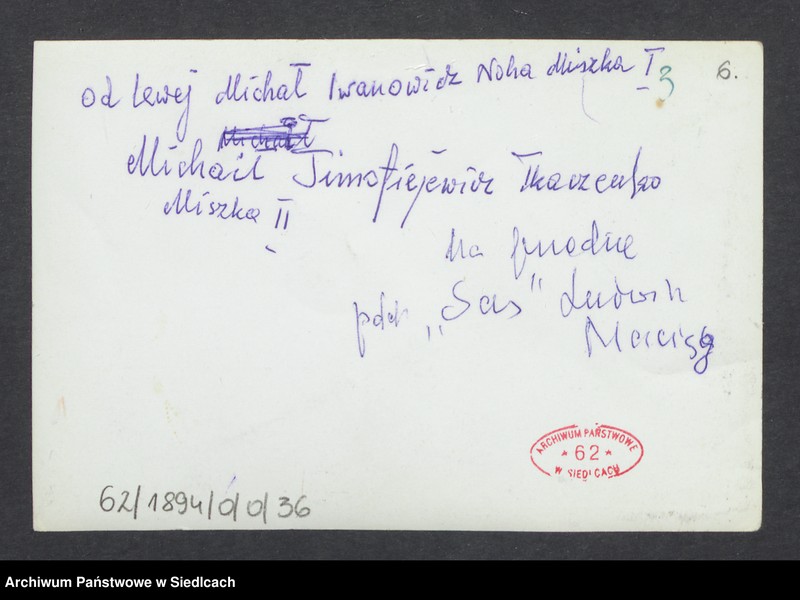 od lewej Michał Iwanowicz Noha Miszka I 3 6.
Michał
Michaił Timofiejewicz Tkaczenko
Miszka II
Na przodzie
pdch „Sas" Ludwik
Maciąg
ARCHIWUM PAŃSTWOWE
* 62 *
W SIEDLCACH
62/1894/0/0/36
Archiwum Państwowe w Siedlcach